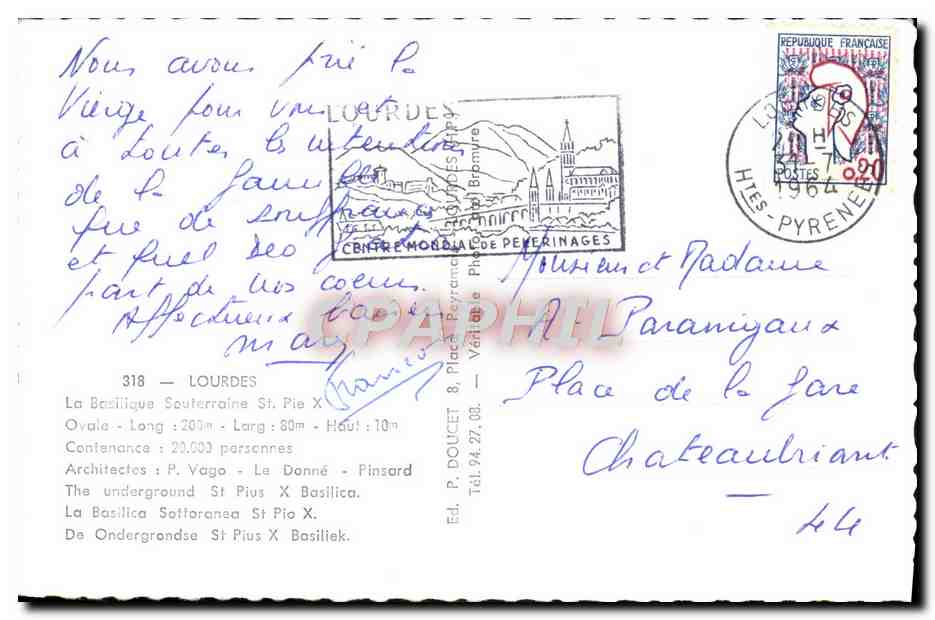 Nous avons prié la
Vierge pour vous et
à toutes les intentions
de la famille
que de souffrances
et quel
part de nos coeurs.
Affectueux baisers
mary
LOURDES
CENTRE MONDIAL DE PELERINAGES
REPUBLIQUE FRANÇAISE
POSTES 0,20
LOURDES
H
31-7
1964
HTES-PYRENEES
Monsieur et Madame
A. Paranigaux
Place de la Gare
Chateaubriant
44
318 — LOURDES
La Basilique Souterraine St. Pie X
Ovale - Long : 200m - Larg : 80m - Haut : 10m
Contenance : 20.000 personnes
Architectes : P. Vago - Le Donné - Pinsard
The underground St Pius X Basilica.
La Basilica Sottoranea St Pio X.
De Ondergrondse St Pius X Basiliek.
Ed. P. DOUCET 8, Place Peyramale LOURDES (H.P.)
Tél. 94.27.08. — Véritable Photo au Bromure
CPAPHIL